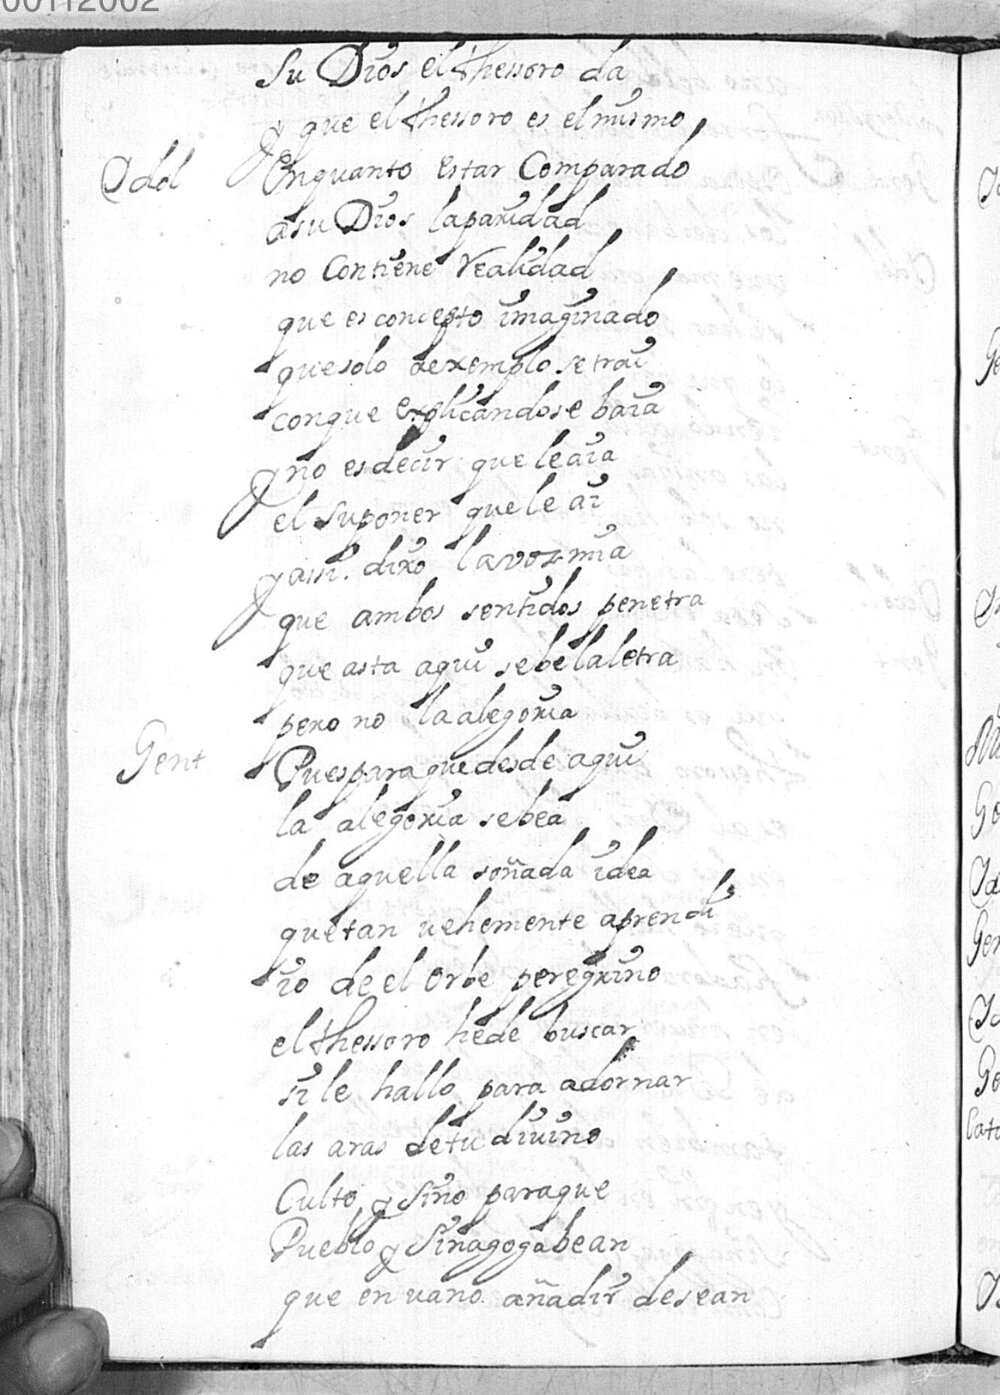 00112002
Su Dios el thessoro da
y que el thessoro es el mismo
Idol Enquanto estar Comparado
asu Dios laparidad
no Contiene Realidad
que es concepto imaginado
quesolo aexemplo setrai
conque explicandose baia
y no esdecir que leaia
el Suponer que le ai
yassi. dixo lavoz mia
que ambos sentidos penetra
que asta aqui sebe laletra
pero no la alegoria
Gent Puespara que desde aqui
la alegoria sebea
de aquella soñada idea
quetan uehemente aprendi
io de el orbe peregrino
el thessoro hede buscar
si le hallo para adornar
las aras detu diuino
Culto, y Sino paraque
Pueblo y Sinagoga bean
que en uano añadir desean